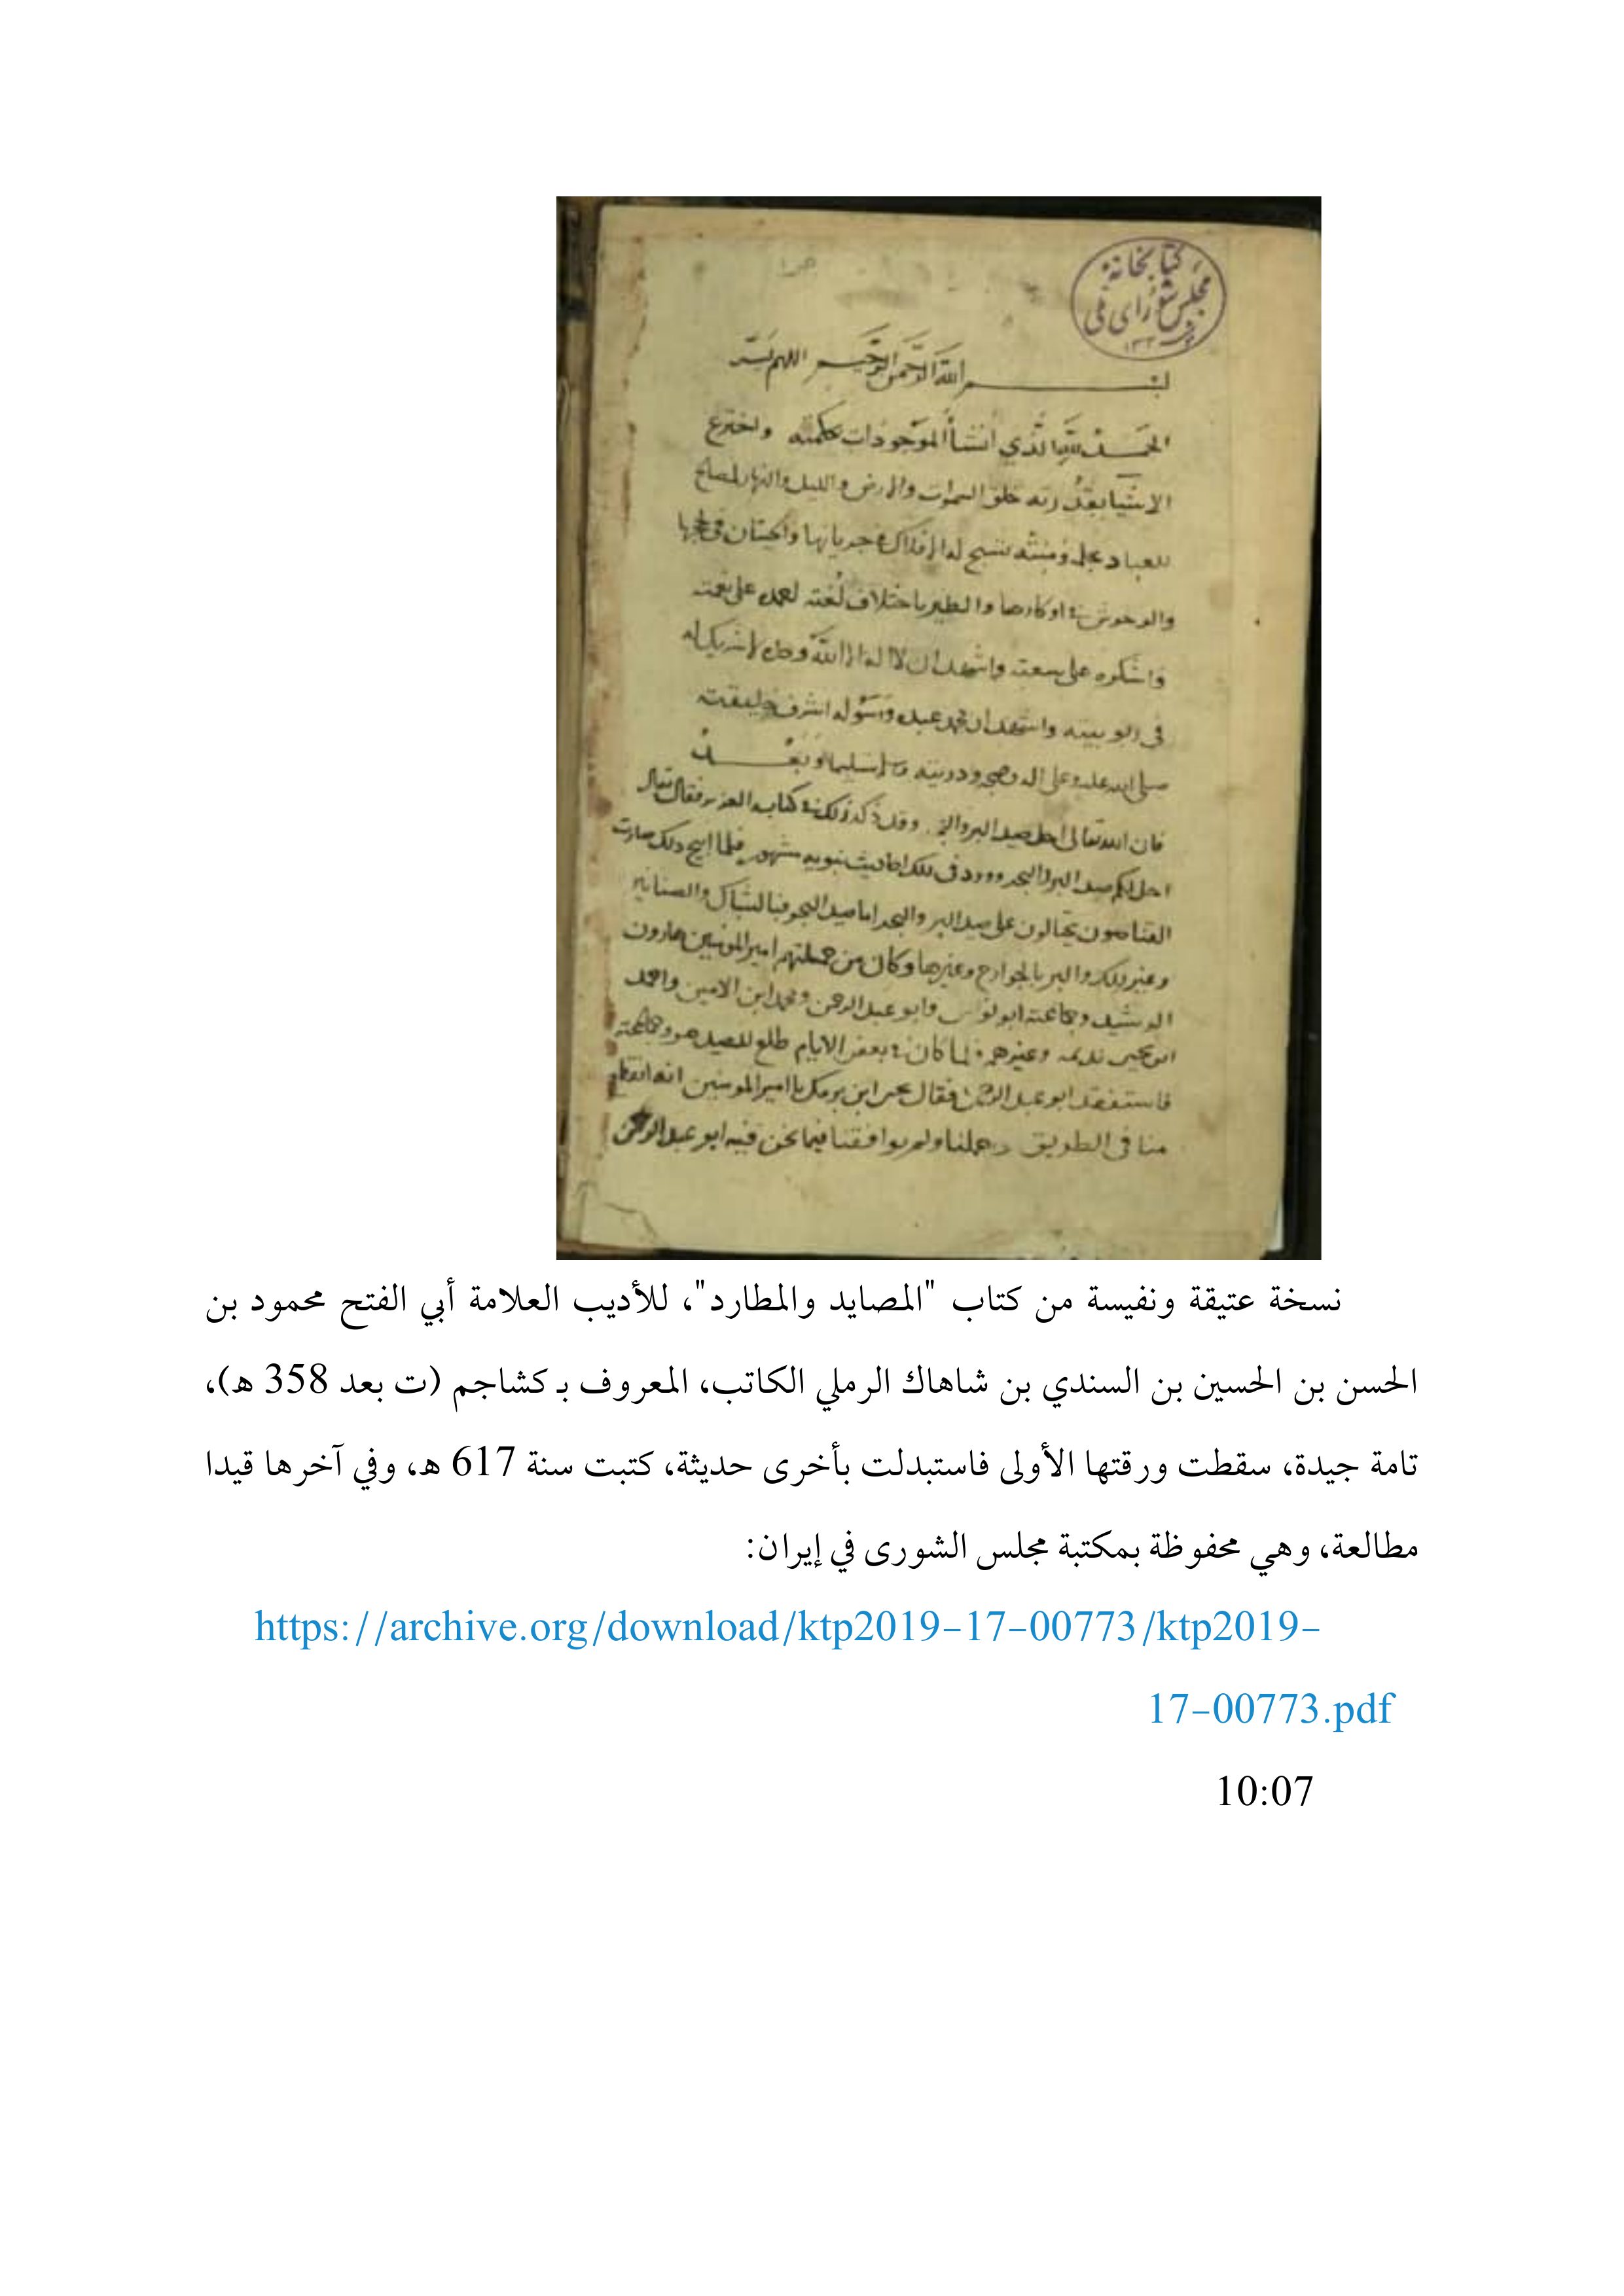 كتابخانة
مجلس شورای ملی
بسم الله الرحمن الرحيم اللهم يسر
الحمد لله الذي انشأ الموجودات بحكمته واخترع
الاشيا بقدرته خلق السموات والارض والليل والنهار لمصالح
للعباد تسبح له الافلاك في جريانها والحيتان في لججها
والوحوش في اوكارها والطير باختلاف لغته احمده على نعمته
واشكره على واشهد ان لا اله الا الله وحده لا شريك له
في الوبيته واشهد ان محمد عبده ورسوله اشرف خليقته
صلى الله عليه وعلى اله وصحبه وذريته وسلم تسليما وبعد
فان الله تعالى احل صيد البر والبحر وقد ذكر ذلك في كتابه العزيز فقال تعالى
احل لكم صيد البر والبحر وورد في ذلك احاديث نبويه مشهوره فلما ابيح ذلك صارت
القناصون يحتالون على صيد البر والبحر اما صيد البحر فبالشباك والصنانير
وغير ذلك والبر بالجوارح وغيرها وكان من جملتهم امير المومنين هارون
الرشيد وجماعته ابو نواس وابو عبد الرحمن ومحمد ابن الامين واحمد
ابو يحيى نديمه وغيرهم فلما كان في بعض الايام طلع للصيد هو وجماعته
فاستفقد ابو عبد الرحمن فقال يحيى ابن برمك يا امير المومنين انه انقطع
منا في الطريق ولم يوافقنا فيما نحن فيه ابو عبد الرحمن
نسخة عتيقة ونفيسة من كتاب "المصايد والمطارد"، للأديب العلامة أبي الفتح محمود بن
الحسن بن الحسين بن السندي بن شاهاك الرملي الكاتب، المعروف بـ كشاجم (ت بعد 358 هـ)،
تامة جيدة، سقطت ورقتها الأولى فاستبدلت بأخرى حديثة، كتبت سنة 617 هـ، وفي آخرها قيدا
مطالعة، وهي محفوظة بمكتبة مجلس الشورى في إيران:
https://archive.org/download/ktp2019-17-00773/ktp2019-
17-00773.pdf
10:07